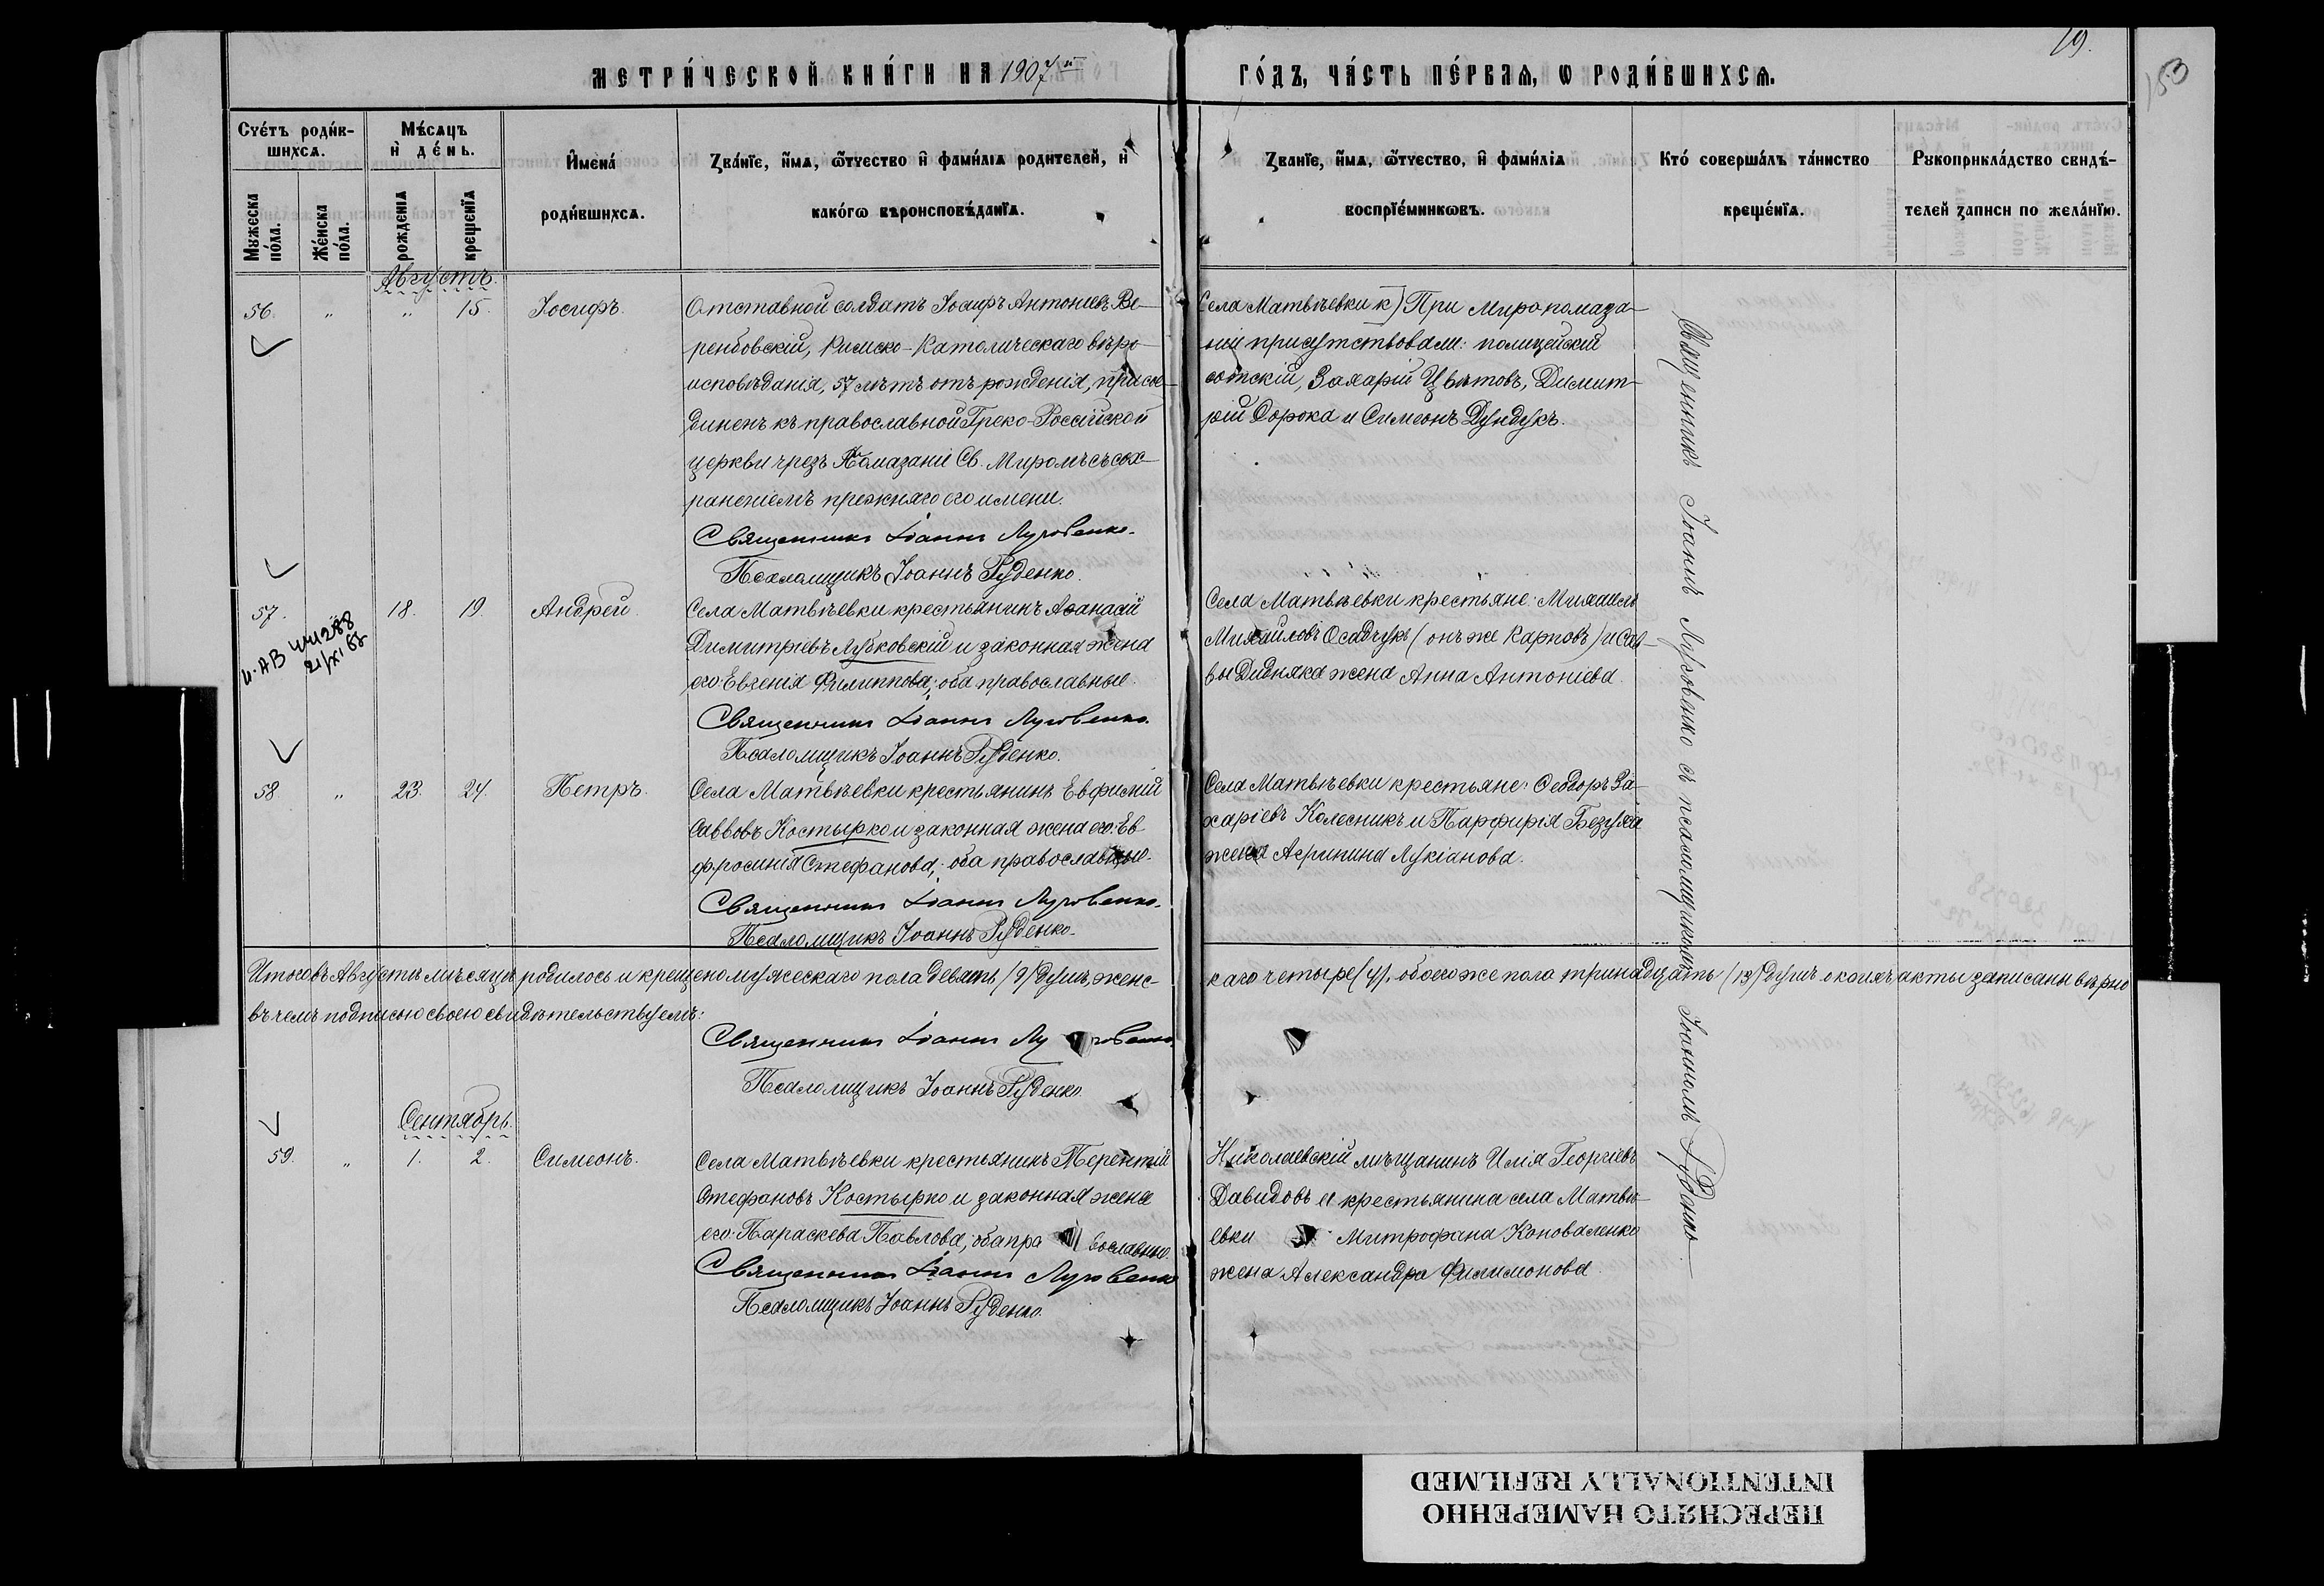 19.
153
МЕТРИ́ЧЕСКОЙ КНИ́ГИ НА 1907 й
ГО́ДЪ, ЧА́СТЬ ПЕ́РВАѦ, Ѡ РОДИ́ВШИХСѦ.
Сче́тъ роди́в-
шихсѧ.
Мꙋжеска
по́ла.
Же́нска
по́ла.
Мѣ́сѧцъ
и҆ де́нь.
рожденїѧ
крещенїѧ
И҆мена́
роди́вшихсѧ.
Зва́нїе, и҆́мѧ, ѻ҆́тчество и҆ фами́лїѧ родителей, и҆
како́гѡ вѣроисповѣ́данїѧ.
Зва́нїе, и҆́мѧ, ѻ҆́тчество, и҆ фами́лїѧ
воспрїе́мниковъ.
Кто́ соверша́лъ та́инство
креще́нїѧ.
Рꙋкоприкла́дство свидѣ́-
телей записи по жела́нїю.
Августъ.
56. „ „ 15. Іосифъ.
Отставной солдатъ Іосифъ Антоніевъ Ве-
ренбовскій, Римско-Католическаго вѣро-
исповѣданія, 57 лѣтъ отъ рожденія, присое-
диненъ къ православной Греко-Россійской
церкви чрезъ Помазаніе Св. Миромъ съ сох-
раненіемъ прежняго его имени.
Священникъ Іоаннъ Луговенко.
Псаломщикъ Іоаннъ Руденко.
Села Матвѣевки к) При Миропомаза-
ніи присутствовали: полицейскій
сотскій, Захарій Цвѣтовъ, Димит-
рій Сорока и Симеонъ Дундукъ.
57. 18. 19. Андрей
Села Матвѣевки крестьянинъ Аѳанасій
Димитріевъ Лубковскій и законная жена
его Евгенія Филиппова; оба православные.
Священникъ Іоаннъ Луговенко.
Псаломщикъ Іоаннъ Руденко.
Села Матвѣевки крестьяне: Михаилъ
Михайловъ Осадчукъ (онъ же Карповъ) и Сав-
вы Дидняка жена Анна Антоніева.
58 „ 23. 24. Петръ.
Села Матвѣевки крестьянинъ Евфимій
Саввовъ Костырко и законная жена его: Ев-
фросинія Стефанова; оба православные.
Священникъ Іоаннъ Луговенко.
Псаломщикъ Іоаннъ Руденко.
Села Матвѣевки крестьяне: Ѳеодоръ За-
харіевъ Колесникъ и Парфирія Безуха
жена Агрипина Лукіанова.
Священникъ Іоаннъ Луговенко съ псаломщикомъ Іоанномъ Руденко.
Итого въ Августѣ мѣсяцѣ родилось и крещено мужескаго пола девять (9) душъ, женс-
каго четыре (4), обоего же пола тринадцать (13) душъ о коихъ акты записаны вѣрно
въ чемъ подписью своею свидѣтельствуемъ:
Священникъ Іоаннъ Луговенко.
Псаломщикъ Іоаннъ Руденко.
Сентябрь.
59. „ 1. 2. Симеонъ.
Села Матвѣевки крестьянинъ Терентій
Стефановъ Костырко и законная жена
его: Параскева Павлова; оба православные.
Священникъ Іоаннъ Луговенко
Псаломщикъ Іоаннъ Руденко.
Николаевскій мѣщанинъ Илія Георгіевъ
Давидовъ и крестьянина села Матвѣ-
евки Митрофана Коноваленко
жена Александра Филимонова.
ПЕРЕСНЯТО НАМЕРЕННО
INTENTIONALLY REFILMED